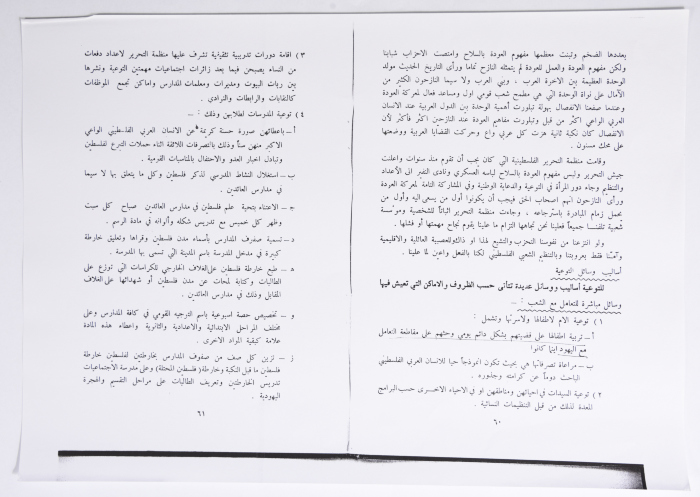 بعددها الضخم وتبنت معظمها مفهوم العودة بالسلاح وامتصت الاحزاب شبابنا
ولكن مفهوم العودة والعمل للعودة لم يتمثله النازح تماما ورأى التاريخ الحديث مولد
الوحدة العظيمة بين الاخوة العرب . وبني العرب ولا سيما النازحون الكثير من
الآمال على نواة الوحدة التي هي مطمح شعب قومي اول ومساعد فعال لمعركة العودة
وعندما صفعنا الانفصال بهوله تبلورت أهمية الوحدة بين الدول العربية عند الانسان
العربي الواعي اكثر من قبل وتبلورت مفاهيم العودة عند النازحين اكثر فأكثر لأن
الانفصال كان نكبة ثانية هزت كل عربي واع وحركت القضايا العربية ووضعتها
على محك مسنون .
وقامت منظمة التحرير الفلسطينية التي كان يجب أن تقوم منذ سنوات واعلنت
جيش التحرير ولبس مفهوم العودة بالسلاح لباسه العسكري ونادى النفير الى الأعداد
والتنظيم وجاء دور المرأة في التوعية والدعاية الوطنية وفي المشاركة التامة لمعركة العودة
ورأى النازحون انهم اصحاب الحق فيجب أن يكونوا أول من يسمى اليه وأول من
يحمل زمام المبادرة باسترجاعه ، وجاءت منظمة التحرير اثباتاً للشخصية ومؤسسة
شعبية تلمسنا جميعاً فعلينا نحن تجاهها التزام ما علينا يقوم نجاح مهمتها أو فشلها .
ولو انتزعنا من نفوسنا التحزب والتشيع لهذا او ذاك وللعصبية العائلية والاقليمية
وآمنّا فقط بعروبتنا وبالتنظيم الشعبي الفلسطيني لكنا بالفعل واعين لما علينا .
اساليب وسائل التوعية
للتوعية أساليب ووسائل عديدة تتأتى حسب الظروف والاماكن التي تعيش فيها
وسائل مباشرة للتعامل مع الشعب : ــ
١ ) توعية الام لاطفالها ولاسرتها وتشمل :
أ ــ تربية اطفالها على قضيتهم بشكل دائم يومي وحثهم على مقاطعة التعامل
مع اليهود اينما كانوا
ب ــ مراعاة تصرفاتها هي بحيث تكون انموذجاً حياً للانسان العربي الفلسطيني
الباحث دوماً عن كرامته وجذوره .
٢ ) توعية السيدات في احيائهن ومناطقهن او في الاحياء الاخرى حسب البرامج
المعدة لذلك من قبل التنظيمات النسائية .
٦٠
٣ ) اقامة دورات تدريبية تثقيفية تشرف عليها منظمة التحرير لاعداد دفعات
من النساء يصبحن فيما بعد زائرات اجتماعيات مهمتهن التوعية ونشرها
بين ربات البيوت ومديرات ومعلمات المدارس واماكن تجمع الموظفات
كالنقابات والرابطات والنوادي .
٤ ) توعية المدرسات لطلابهن وذلك : ــ
أ ــ باعطائهن صورة حسنة كريمة عن الانسان العربي الفلسطيني الواعي
الاكبر منهن سناً وذلك بالتصرفات اللائقة اثناء حملات التبرع لفلسطين
وتبادل اخبار العدو والاحتفال بالمناسبات القومية .
ب ــ استغلال النشاط المدرسي لذكر فلسطين وكل ما يتعلق بها لا سيما
في مدارس العائدين .
جـ ــ الاعتناء بتحية علم فلسطين في مدارس العائدين صباح كل سبت
وظهر كل خميس مع تدريس شكله وألوانه في مادة الرسم .
د ــ تسمية صفوف المدارس بأسماء مدن فلسطين وقراها وتعليق خارطة
كبيرة في مدخل المدرسة باسم المدينة التي تسمى بها المدرسة .
هـ ــ طبع خارطة فلسطين على الغلاف الخارجي للكراسات التي توزع على
الطالبات وكتابة لمحات عن مدن فلسطين او شهدائها على الغلاف
المقابل وذلك في مدارس العائدين .
و ــ تخصيص حصة اسبوعية باسم الترجيه القومي في كافة المدارس وعلى
مختلف المراحل الابتدائية والاعدادية والثانوية واعطاء هذه المادة
علامة كبقية المواد الاخرى .
ز ــ تزين كل صف من صفوف المدارس بخارطتين لفلسطين خارطة
فلسطين ما قبل النكبة وخارطة ( فلسطين المحتلة ) وعلى مدرسة الاجتماعيات
تدريس الخارطتين وتعريف الطالبات على مراحل التقسيم والهجرة
اليهودية .
٦١